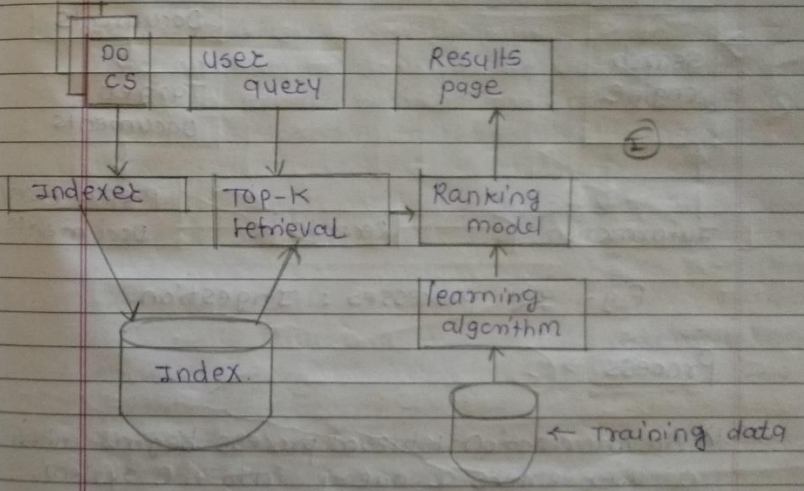 DO
CS
User
query
Results
page
Indexer
Top-K
retrieval
Ranking
model
learning
algorithm
Index.
← Training data